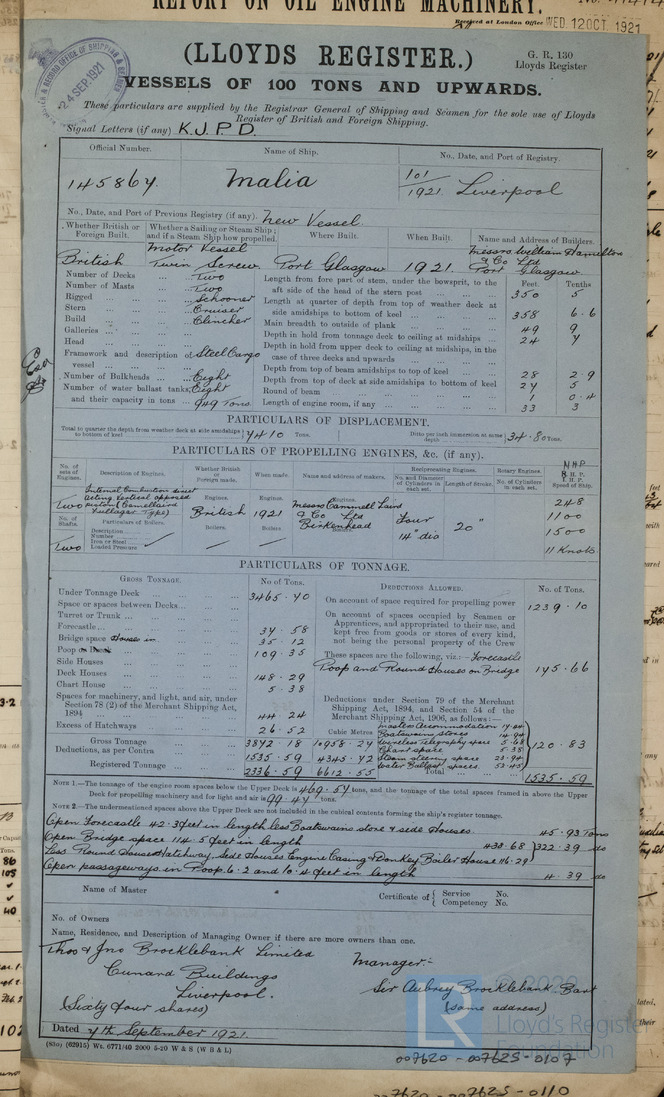 REPORT ON OIL ENGINE MACHINERY.
Received at London Office WED. 12 OCT. 1921
(LLOYDS REGISTER.)
G. R. 130
Lloyds Register
VESSELS OF 100 TONS AND UPWARDS.
These particulars are supplied by the Registrar General of Shipping and Seamen for the sole use of Lloyds
Register of British and Foreign Shipping.
Signal Letters (if any) K.J.P.D.
Official Number. Name of Ship. No., Date, and Port of Registry.
145864. Malia 101/1921 Liverpool
No., Date, and Port of Previous Registry (if any). New Vessel.
Whether British or Foreign Built. Whether a Sailing or Steam Ship; and if a Steam Ship how propelled. Where Built. When Built. Name and Address of Builders.
British Motor Vessel Twin Screw Port Glasgow 1921. Messrs William Hamilton & Co Ltd Port Glasgow
Feet. Tenths
Number of Decks Two
Number of Masts Two
Rigged Schooner
Stern Cruiser
Build Clincher
Galleries
Head
Framework and description of vessel Steel Cargo
Number of Bulkheads Eight
Number of water ballast tanks, Eight
and their capacity in tons 949 Tons
Length from fore part of stem, under the bowsprit, to the aft side of the head of the stern post 350 5
Length at quarter of depth from top of weather deck at side amidships to bottom of keel 358 6.6
Main breadth to outside of plank 49 9
Depth in hold from tonnage deck to ceiling at midships 24 7
Depth in hold from upper deck to ceiling at midships, in the case of three decks and upwards
Depth from top of beam amidships to top of keel 28 2.9
Depth from top of deck at side amidships to bottom of keel 27 5
Round of beam 1 0.4
Length of engine room, if any 33 3
PARTICULARS OF DISPLACEMENT.
Total to quarter the depth from weather deck at side amidships to bottom of keel 7410 Tons. Ditto per inch immersion at same depth 34.80 Tons.
PARTICULARS OF PROPELLING ENGINES, &c. (if any).
No. of sets of Engines. Description of Engines. Whether British or Foreign made. When made. Name and address of makers. Reciprocating Engines. Rotary Engines. NHP
No. and Diameter of Cylinders in each set. Length of Stroke. No. of Cylinders in each set. Speed of Ship.
Two Internal combustion direct acting vertical opposed piston (Cammellaird Fullagar Type)
Engines. British Engines. 1921 Engines. Messrs Cammell Laird & Co Ltd Birkenhead Four 14" dia 20" 248 1100 1500 11 Knots
No. of Shafts. Two
Particulars of Boilers.
Description
Number
Iron or Steel
Loaded Pressure
Boilers. Boilers. Boilers.
PARTICULARS OF TONNAGE.
GROSS TONNAGE. No. of Tons. DEDUCTIONS ALLOWED. No. of Tons.
Under Tonnage Deck 3465.70
Space or spaces between Decks
Turret or Trunk
Forecastle 37.58
Bridge space House in 35.12
Poop 109.35
Side Houses
Deck Houses 148.29
Chart House 5.38
Spaces for machinery, and light, and air, under Section 78 (2) of the Merchant Shipping Act, 1894 44.24
Excess of Hatchways 26.52
Gross Tonnage 3872.18 Cubic Metres 10958.27
Deductions, as per Contra 1535.59 4345.72
Registered Tonnage 2336.59 6612.55
On account of space required for propelling power 1239.10
On account of spaces occupied by Seamen or Apprentices, and appropriated to their use, and kept free from goods or stores of every kind, not being the personal property of the Crew
These spaces are the following, viz.:— Forecastle
Poop and Round Houses on Bridge 175.66
Deductions under Section 79 of the Merchant Shipping Act, 1894, and Section 54 of the Merchant Shipping Act, 1906, as follows:—
Masters Accommodation
Boatswains stores
Wireless Telegraphy space 5.68
Chart space 5.38
Steam steering space 23.94
Water Ballast spaces
120.83
Total 1535.59
NOTE 1.—The tonnage of the engine room spaces below the Upper Deck is 469.57 tons, and the tonnage of the total spaces framed in above the Upper
Deck for propelling machinery and for light and air is 99.47 tons.
NOTE 2.—The undermentioned spaces above the Upper Deck are not included in the cubical contents forming the ship's register tonnage.
Open Forecastle 42.3 feet in length less Boatswains store & side Houses 45.93 Tons
Open Bridge space 114.5 feet in length 438.68
Less Round House Hatchway, Side Houses Engine Casing & Donkey Boiler House 116.29 322.39 do
Open passageways in Poop 6.2 and 10.4 feet in length 4.39 do
Name of Master
Certificate of { Service No.
Competency No.
No. of Owners
Name, Residence, and Description of Managing Owner if there are more owners than one.
Thos & Jno Brocklebank Limited Manager:-
Cunard Buildings
Liverpool. Sir Aubrey Brocklebank Bart
(Sixty four shares) (same address)
Dated 7th September 1921.
(830) (62915) Wt. 6771/40 2000 5-20 W & S (W B & L)
© 2022
LR
Lloyd's Register
Foundation
007620-007625-0107
007620-007625-0110